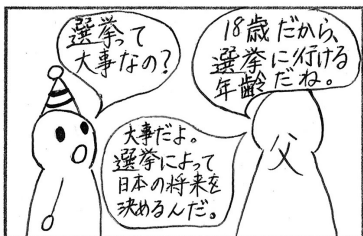 18歳だから、
選挙に行ける
年齢だね。
選挙って
大事なの？
大事だよ。
選挙によって
日本の将来を
決めるんだ。
父